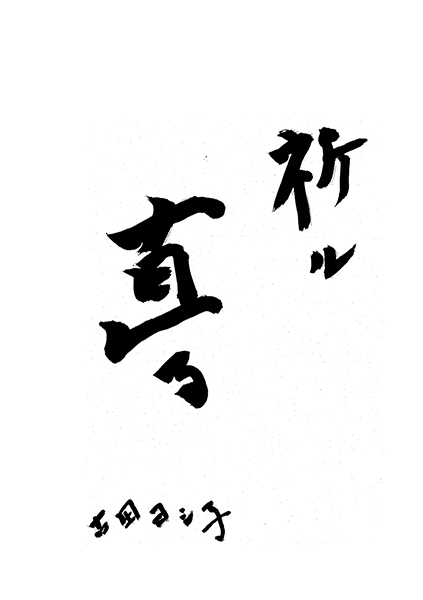 祈ル
真
吉田ヨシ子